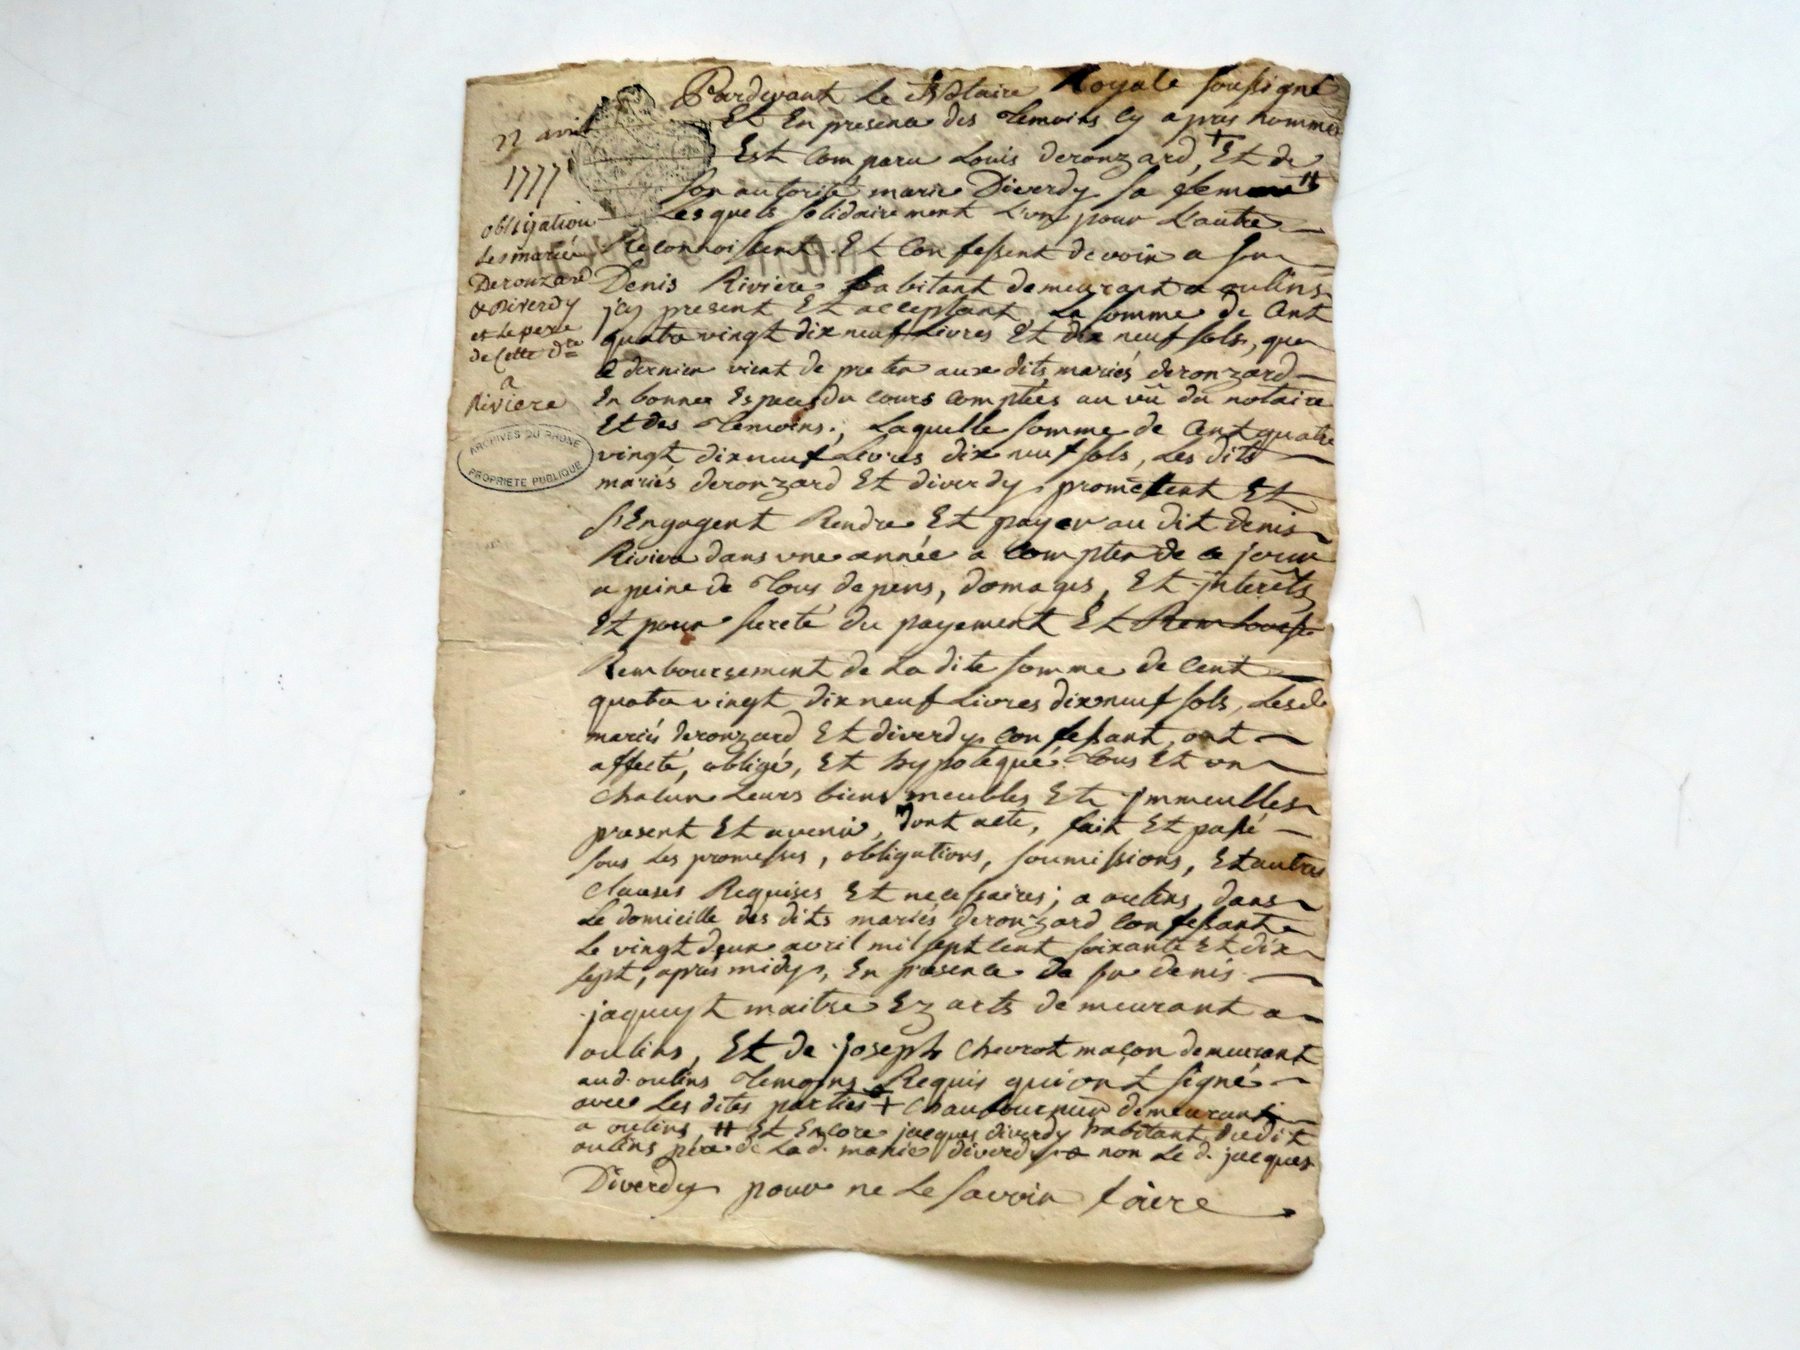 22 avril
1777
obligation
des mariés
Deronzard
& Diverdy
et le pere
de cette dte
a
Riviere
ARCHIVES DU RHONE
PROPRIETE PUBLIQUE
Pardevant Le Notaire Royale soussigné
Et En presence des Temoins cy apres nommés
Est Comparu Louis deronzard, + Et de
son autorité marie Diverdy sa femme #
Lesquels solidairement L'un pour L'autre
Reconnoissent Et Confessent devoir a sr
Denis Riviere habitant demeurant a oulins
icy present Et acceptant, La somme de Cent
quatre vingt dix neuf Livres Et dix neuf sols, que
ce dernier vient de preter aux dits mariés deronzard
En bonnes Especes du cours comptées au vû du notaire
Et des Temoins; Laquelle somme de Cent quatre
vingt dix neuf Livres dix neuf sols, Les dits
mariés deronzard Et diverdy promettent Et
s'Engagent Rendre Et payer au dit denis
Riviere dans une année a compter de ce jour
a peine de Tous depens, domages, Et jnterêts
Et pour sureté du payement Et Rembourse
Remboursement de La dite somme de Cent
quatre vingt dix neuf Livres dix neuf sols, Lesd.
mariés deronzard Et diverdy confessant, ont
affecté, obligé, Et hypotequé Tous Et un
Chacun Leurs biens meubles Et jmmeubles
present Et avenir, Dont acte, fait Et passé
sous Les promesses, obligations, soumissions, Et autres
Clauses Requises Et necessaires; a oulins, dans
Le domicille des dits mariés deronzard confessant
Le vingt deux avril mil sept cent soixante Et dix
sept, après midy, En presence de sr denis
jaqueyt maitre Ez arts demeurant a
oulins, Et de joseph Chevrot maçon demeurant
aud. oulins Temoins Requis qui ont signé
avec Les dites parties + Chaufournier demeurant
a oulins # Et Encore jacques diverdy habitant dudit
oulins père de Lad. marie diverdy non Le d. jacques
Diverdy pour ne Le savoir faire